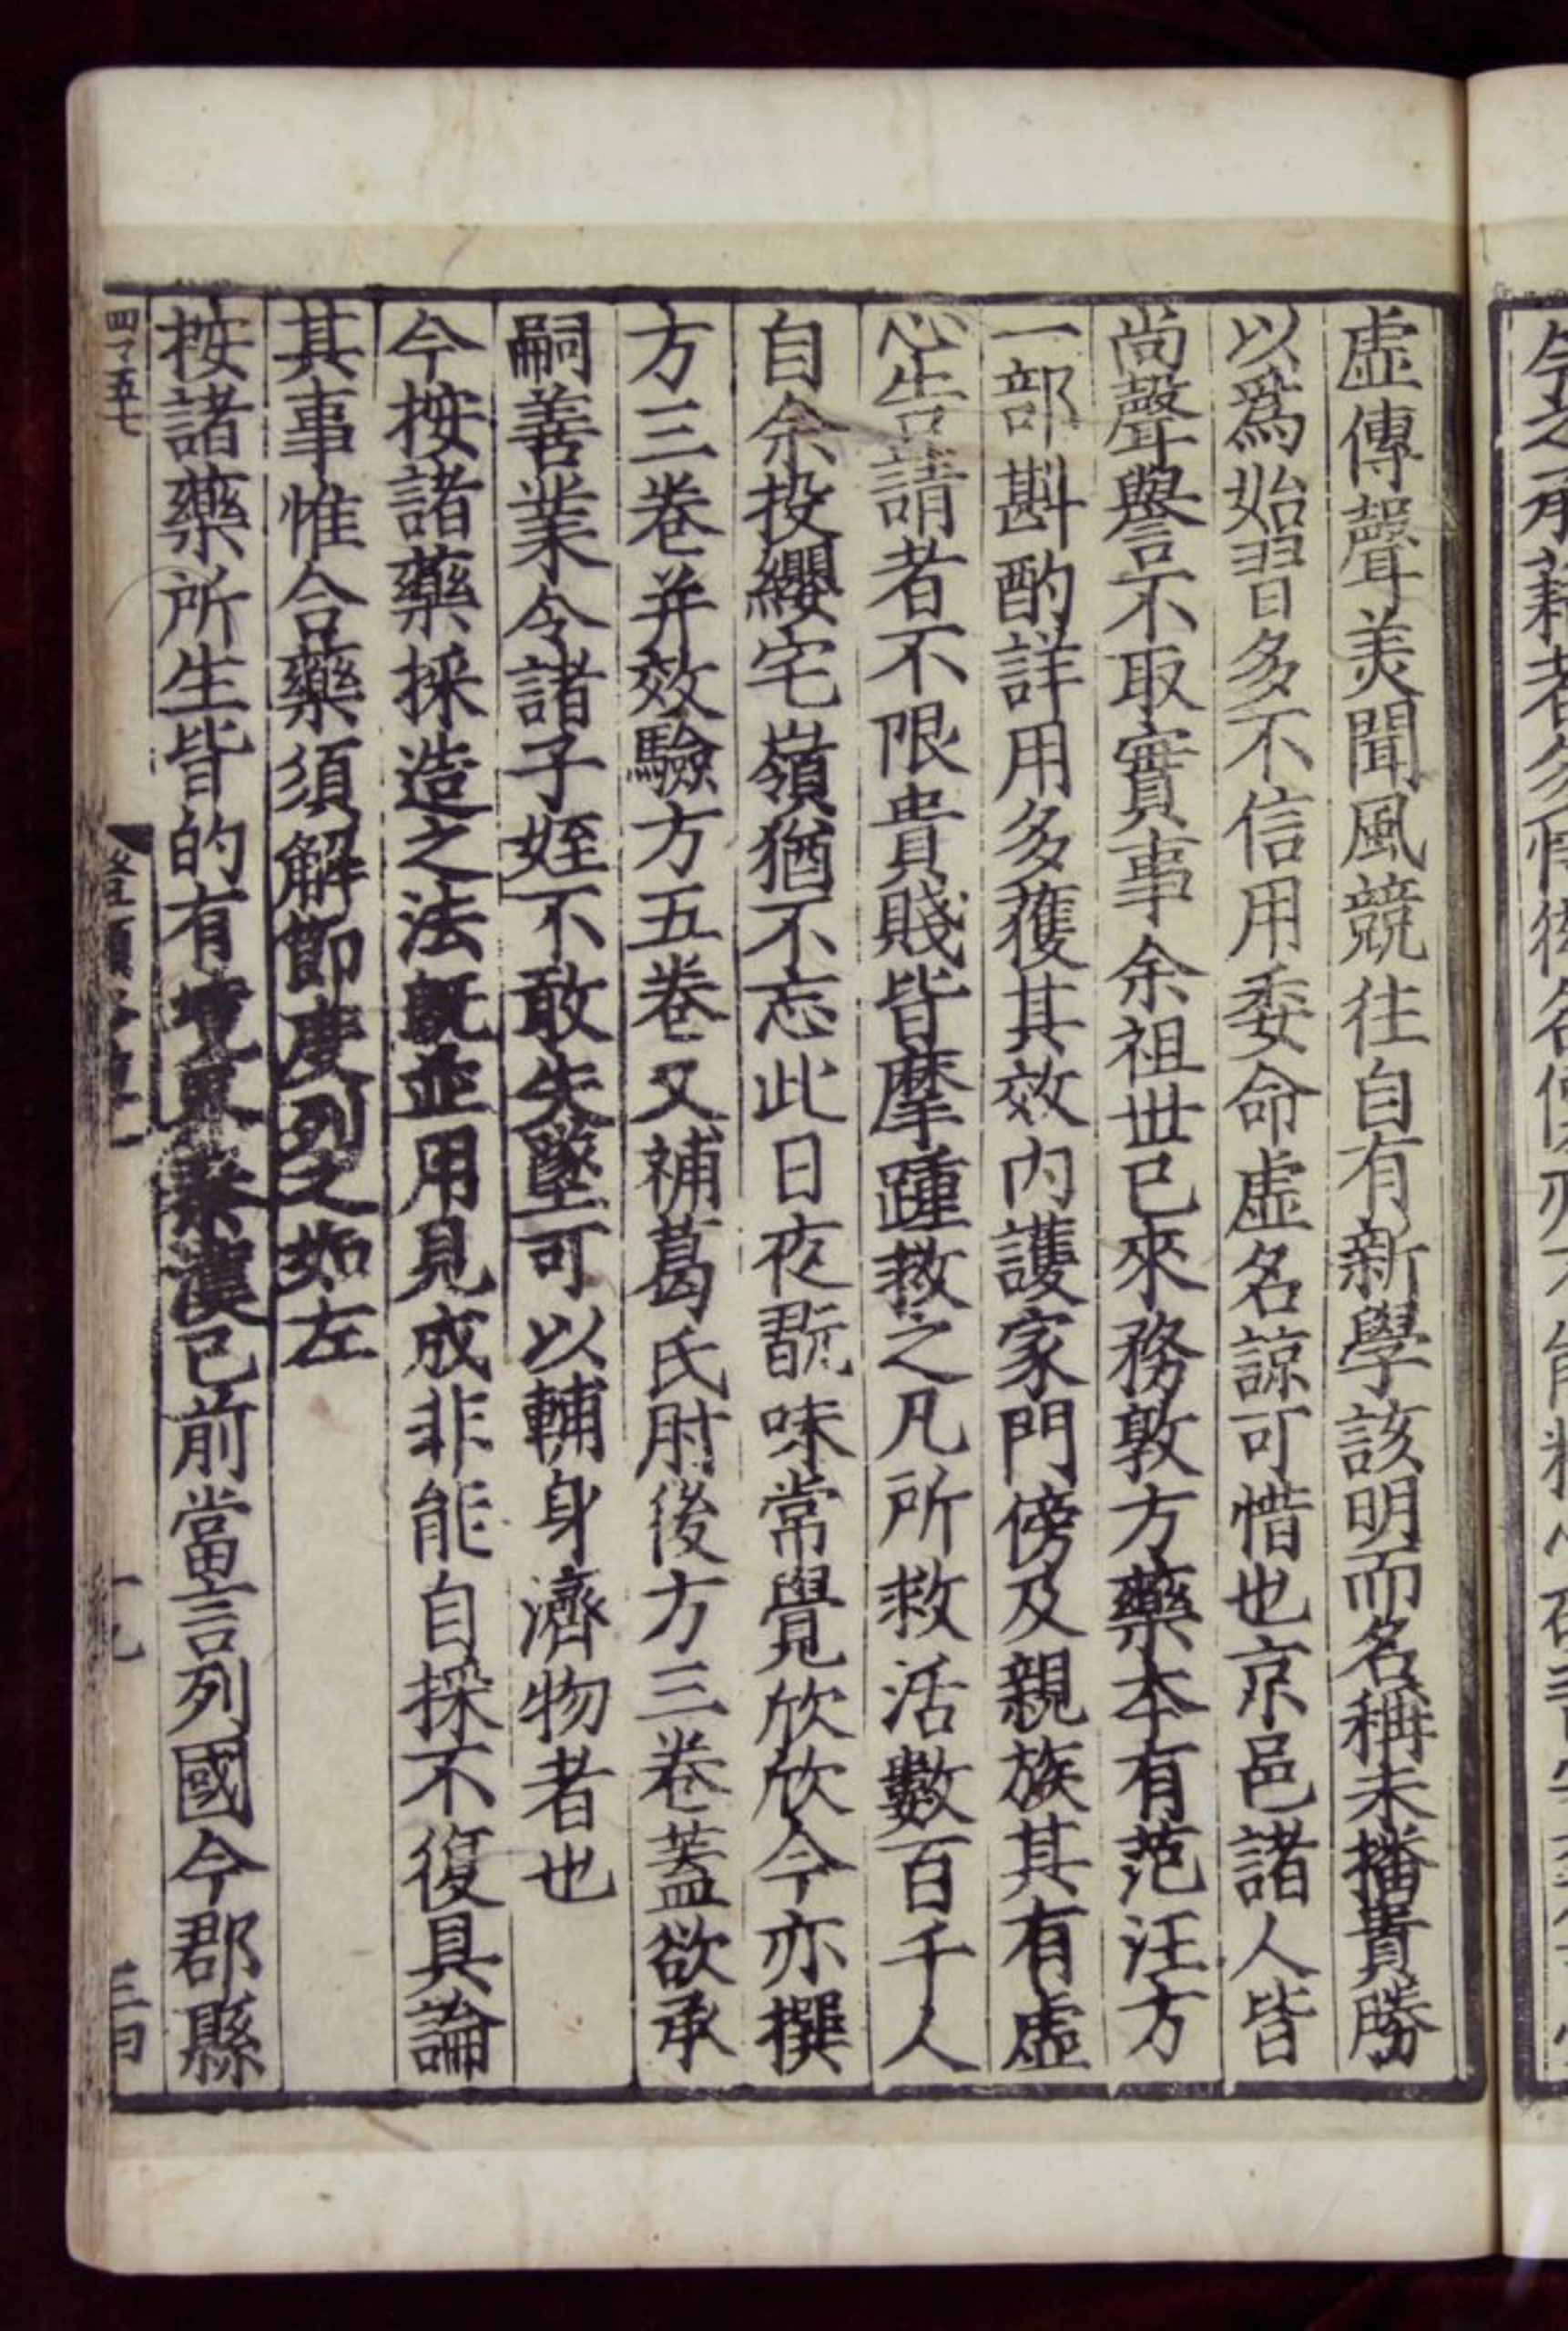 虛傳聲美聞風競往自有新學該明而名稱未播貴勝
以爲始習多不信用委命虛名諒可惜也京邑諸人皆
尚聲譽不取實事余祖世已來務敦方藥本有范汪方
一部斟酌詳用多獲其效內護家門傍及親族其有虛
心告請者不限貴賤皆摩踵救之凡所救活數百千人
自余投纓宅嶺猶不忘此日夜翫味常覺欣欣今亦撰
方三卷并效驗方五卷又補葛氏肘後方三卷蓋欲承
嗣善業令諸子姪不敢失墜可以輔身濟物者也
今按諸藥採造之法既並用見成非能自採不復具論
其事惟合藥須解節度列之如左
按諸藥所生皆的有境界秦漢已前當言列國今郡縣